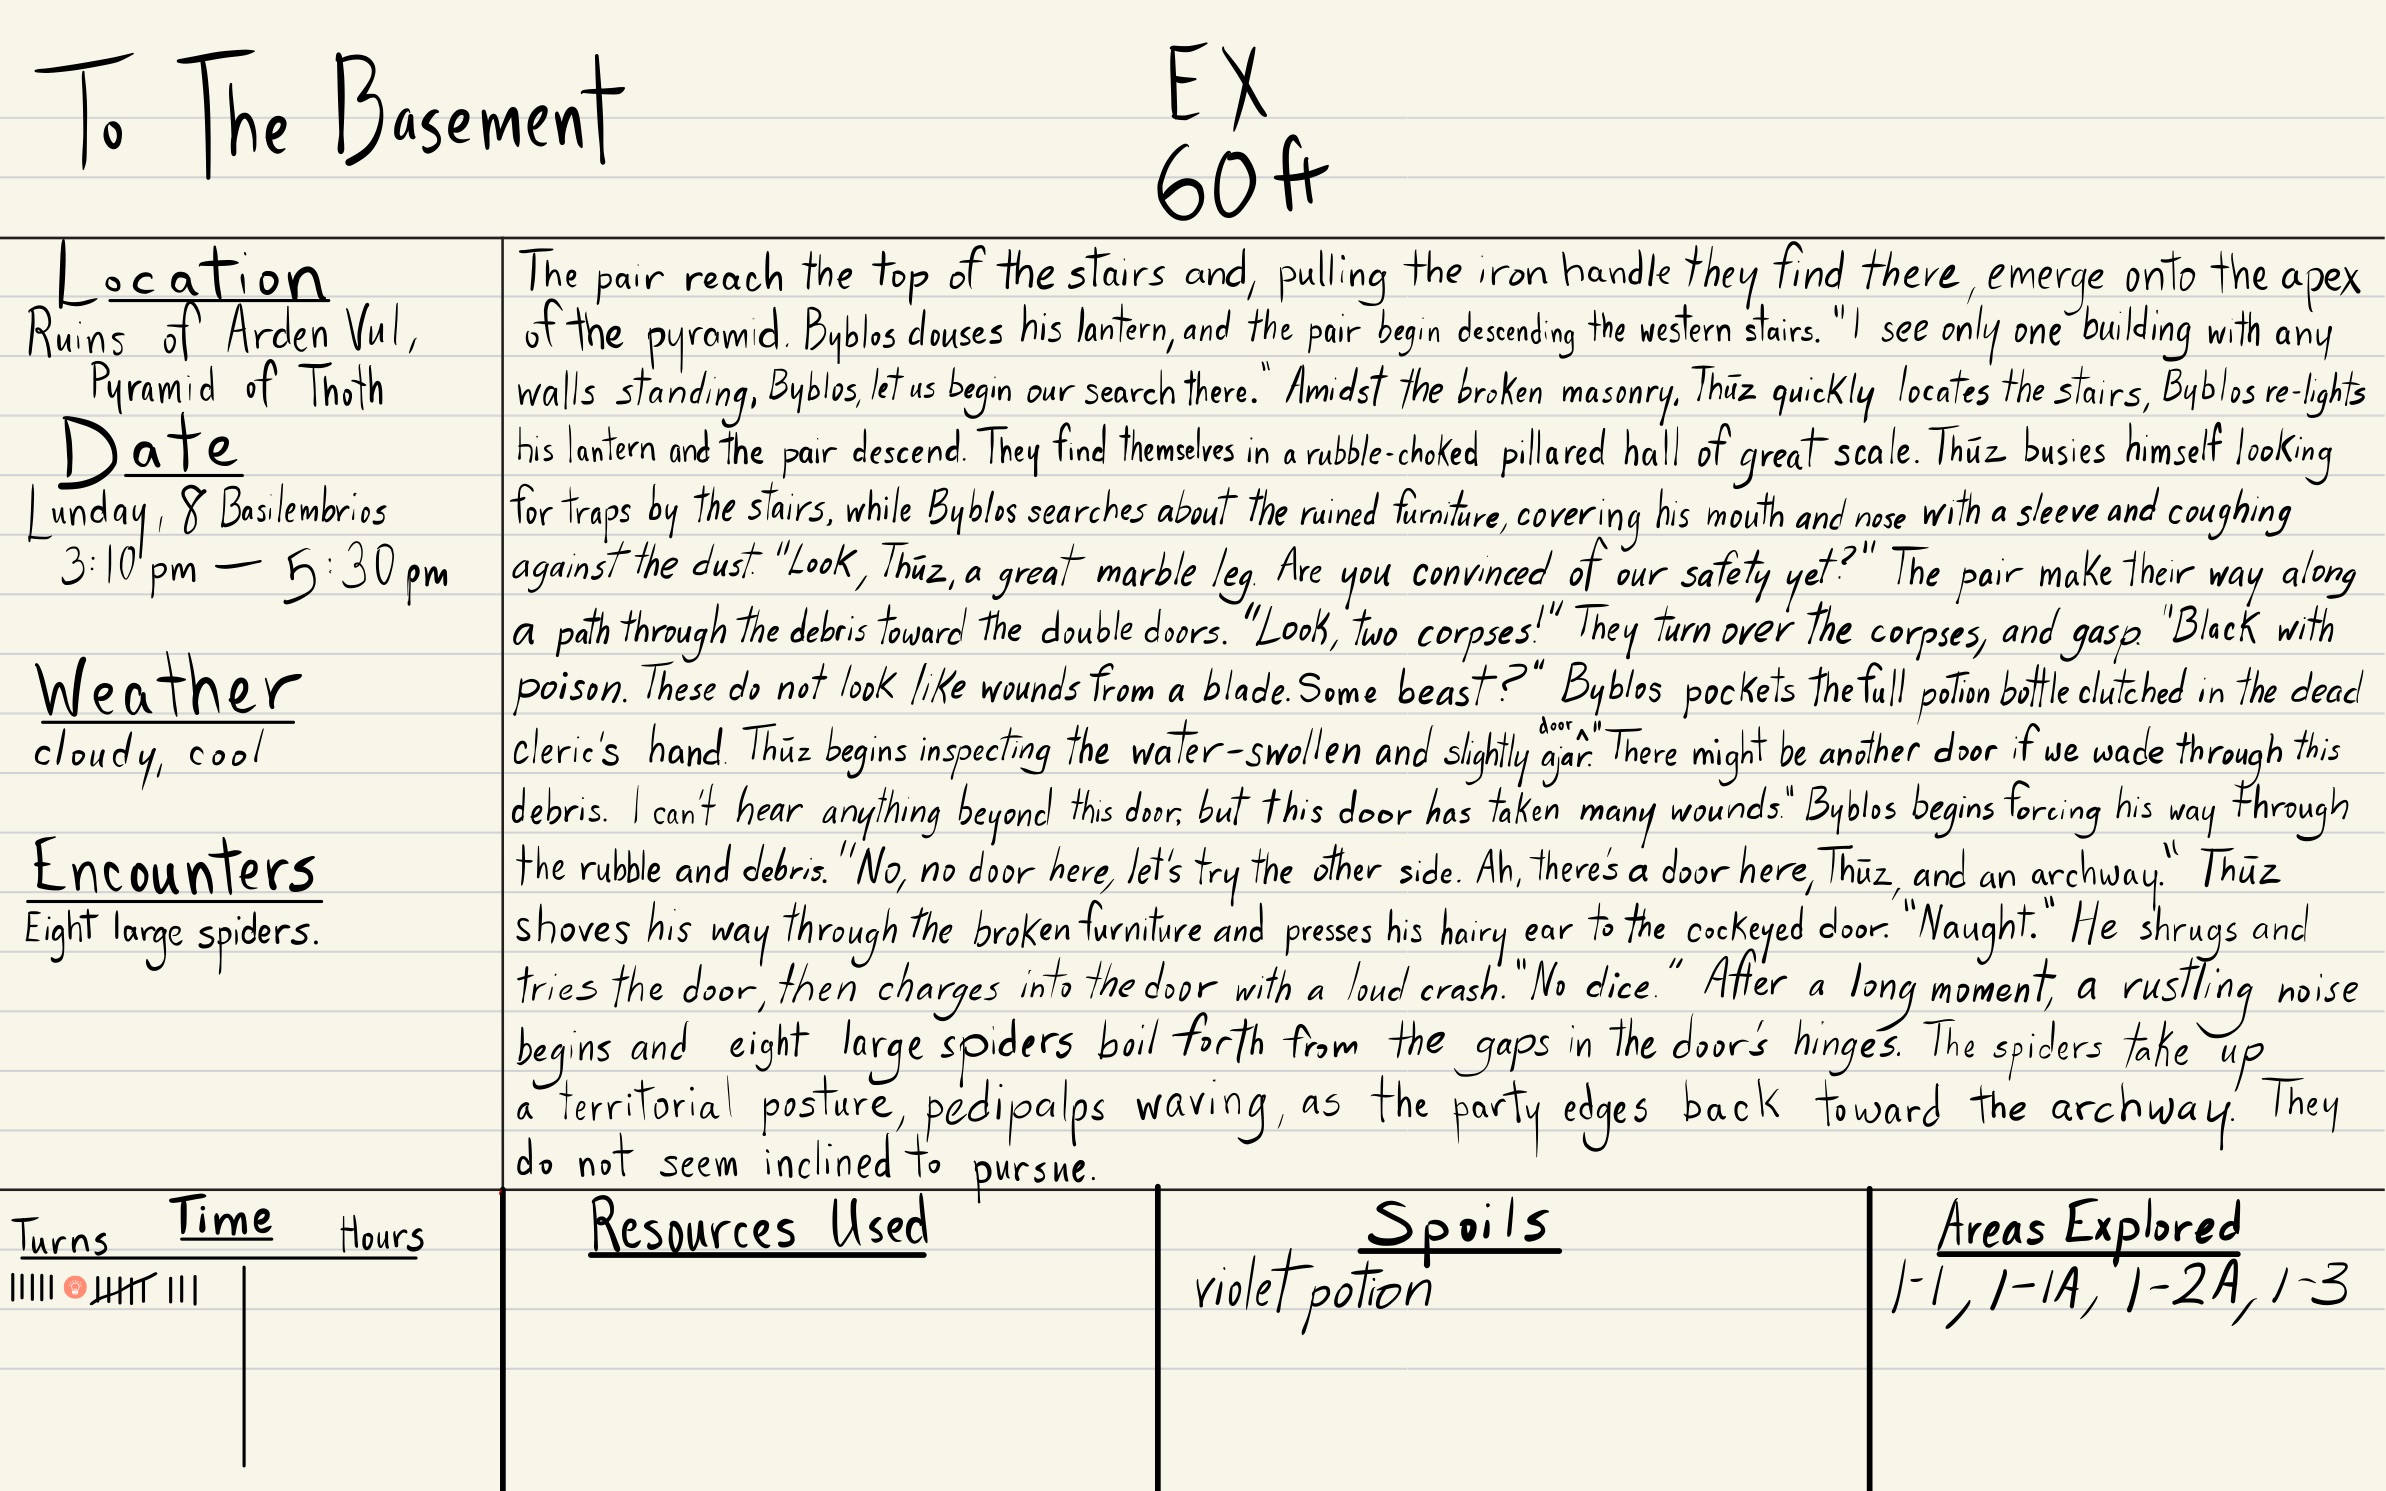 To The Basement
EX
60ft
Location
Ruins of Arden Vul,
Pyramid of Thoth
Date
Lunday, 8 Basilembrios
3:10 pm — 5:30 pm
Weather
cloudy, cool
Encounters
Eight large spiders.
The pair reach the top of the stairs and, pulling the iron handle they find there, emerge onto the apex
of the pyramid. Byblos douses his lantern, and the pair begin descending the western stairs. "I see only one building with any
walls standing, Byblos, let us begin our search there." Amidst the broken masonry, Thūz quickly locates the stairs, Byblos re-lights
his lantern and the pair descend. They find themselves in a rubble-choked pillared hall of great scale. Thūz busies himself looking
for traps by the stairs, while Byblos searches about the ruined furniture, covering his mouth and nose with a sleeve and coughing
against the dust. "Look, Thūz, a great marble leg. Are you convinced of our safety yet?" The pair make their way along
a path through the debris toward the double doors. "Look, two corpses!" They turn over the corpses, and gasp. "Black with
poison. These do not look like wounds from a blade. Some beast?" Byblos pockets the full potion bottle clutched in the dead
cleric's hand. Thūz begins inspecting the water-swollen and slightly ajar door^. "There might be another door if we wade through this
debris. I can't hear anything beyond this door, but this door has taken many wounds." Byblos begins forcing his way through
the rubble and debris. "No, no door here, let's try the other side. Ah, there's a door here, Thūz, and an archway." Thūz
shoves his way through the broken furniture and presses his hairy ear to the cockeyed door. "Naught." He shrugs and
tries the door, then charges into the door with a loud crash. "No dice." After a long moment, a rustling noise
begins and eight large spiders boil forth from the gaps in the door's hinges. The spiders take up
a territorial posture, pedipalps waving, as the party edges back toward the archway. They
do not seem inclined to pursue.
Time
Turns Hours
Resources Used
Spoils
violet potion
Areas Explored
1-1, 1-1A, 1-2A, 1-3